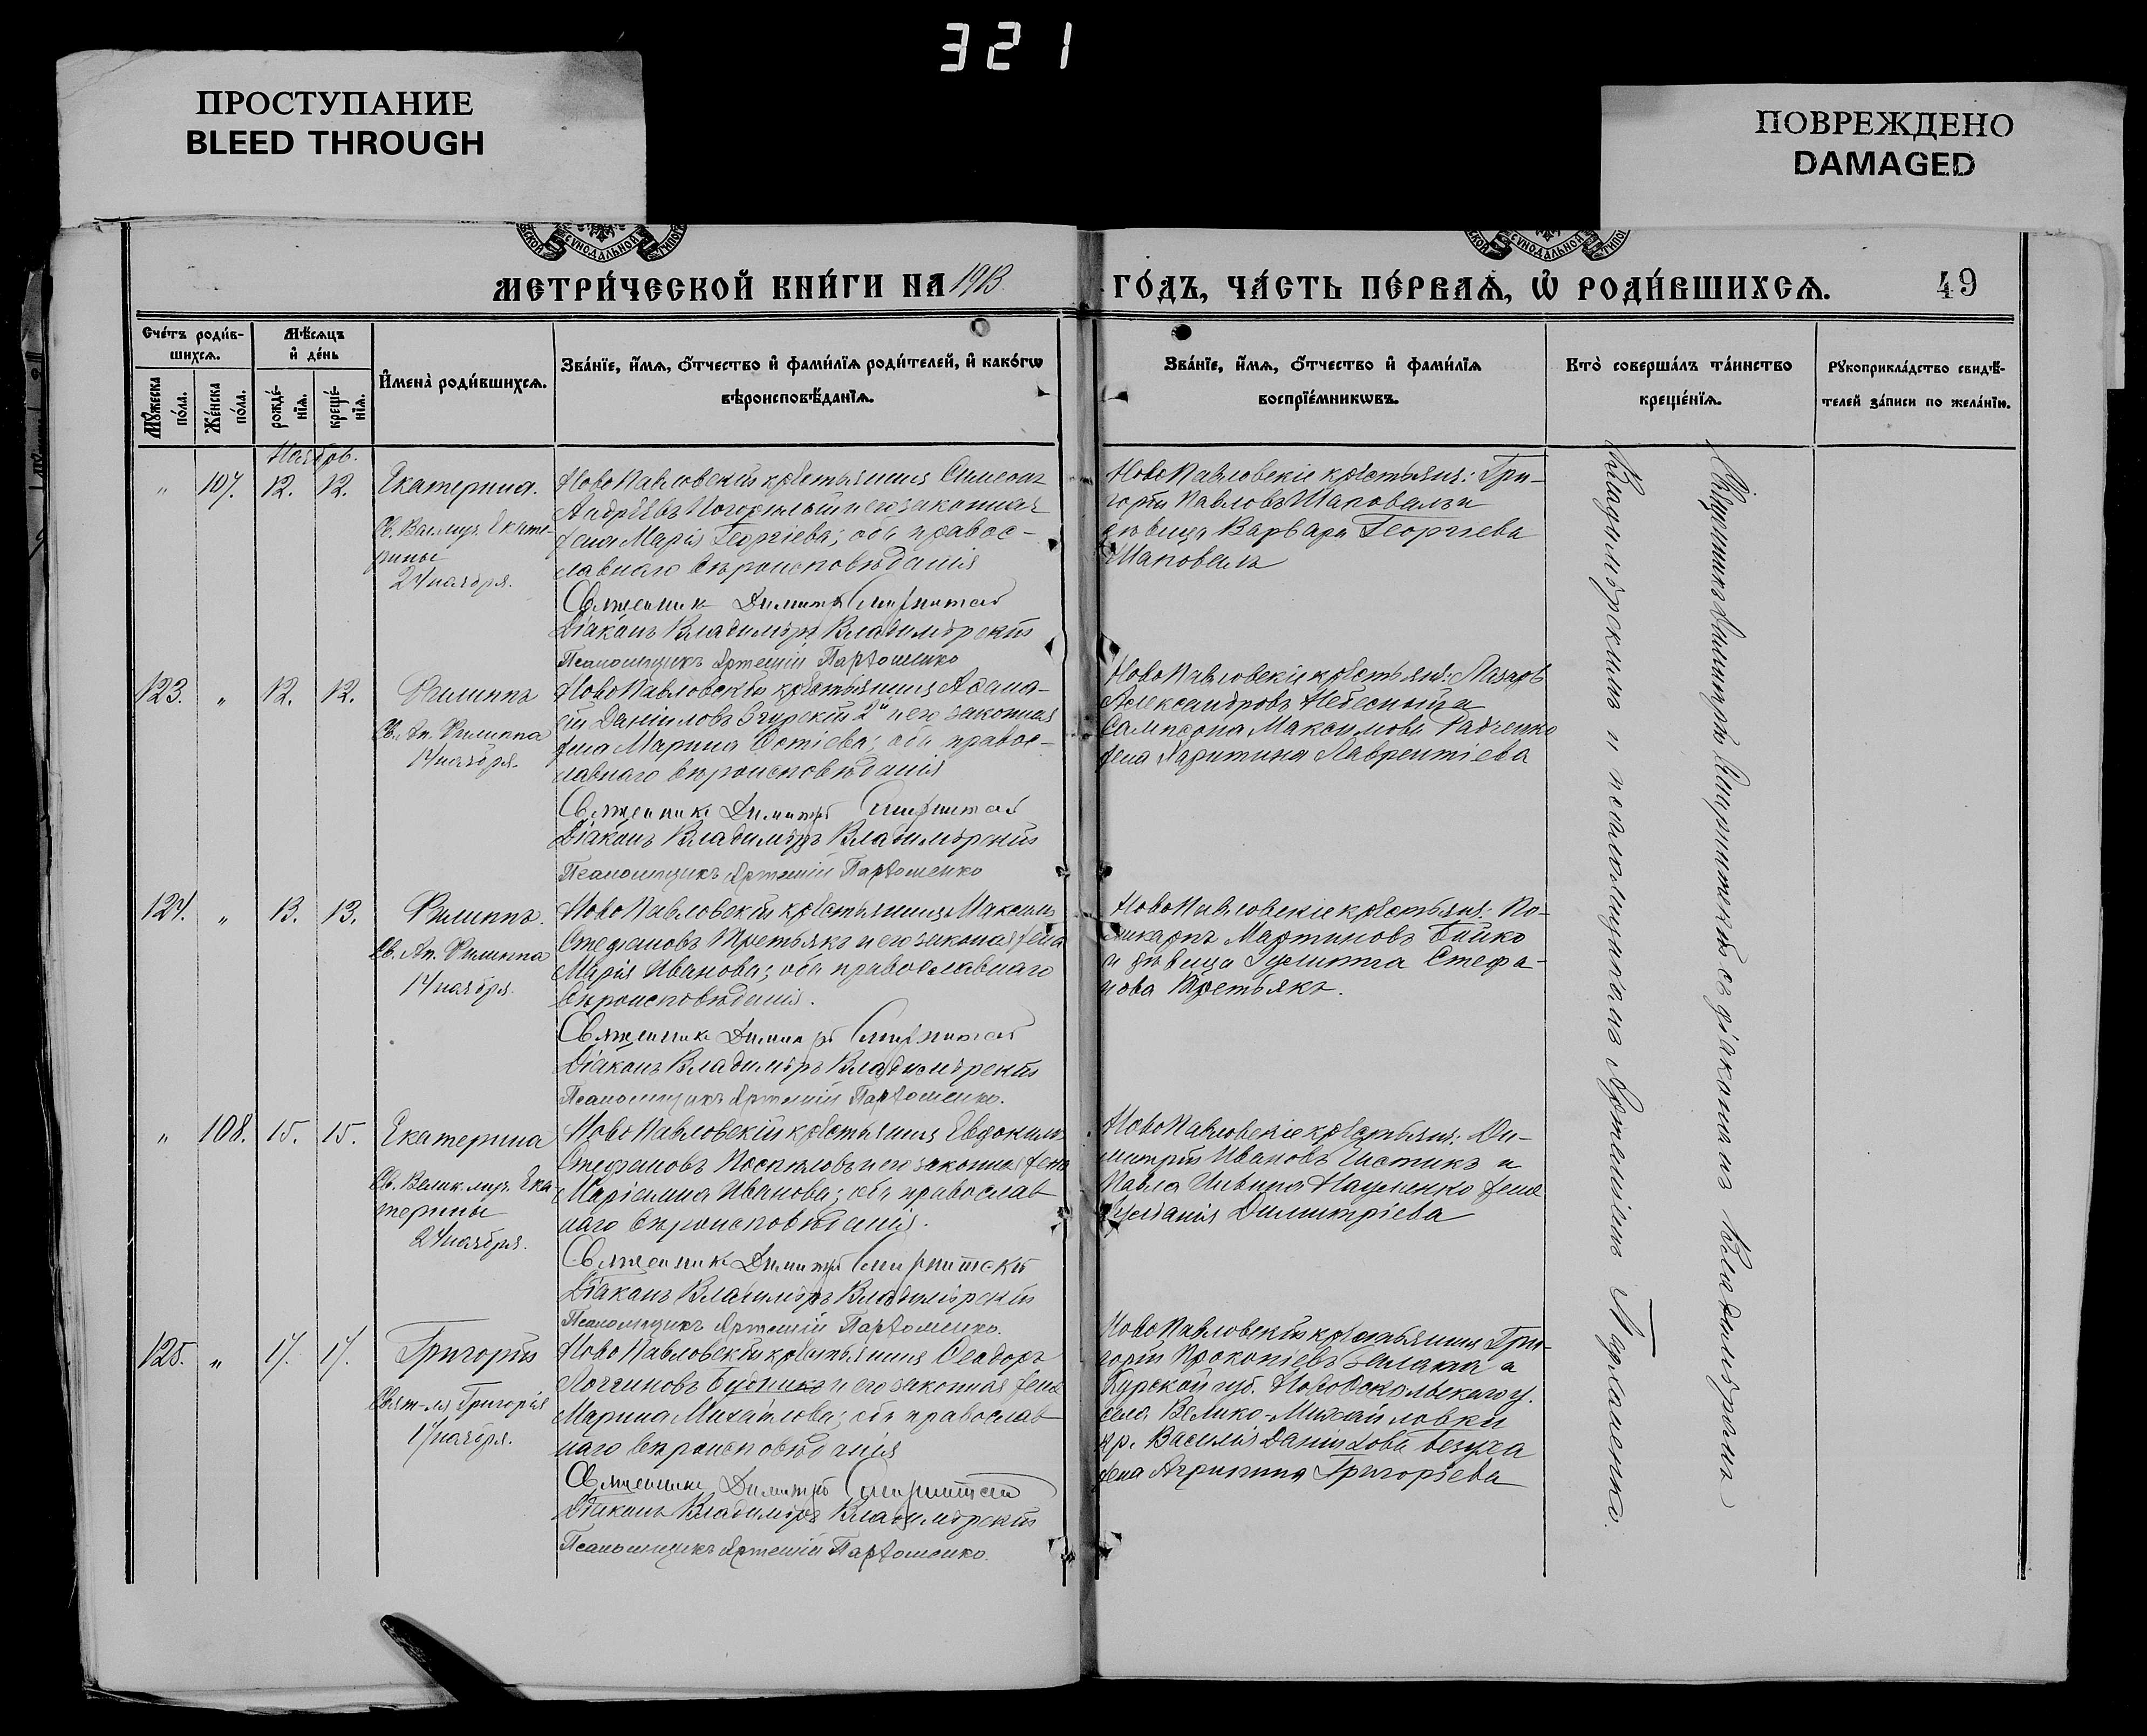 321
ПРОСТУПАНИЕ
BLEED THROUGH
ПОВРЕЖДЕНО
DAMAGED
МЕТРИ́ЧЕСКОЙ КНИ́ГИ НА 1913
ГО́ДЪ, ЧА́СТЬ ПЕ́РВАѦ, Ѽ РОДИ́ВШИХСѦ.
49
Сче́тъ роди́в-
шихсѧ.
Мѣ́сѧцъ
и҆ де́нь
Мꙋ́жеска по́ла.
Же́нска по́ла.
рожде́-
нїѧ.
креще́-
нїѧ.
И҆мена̀ роди́вшихсѧ.
Зва́нїе, и҆́мѧ, ѻ҆́тчество и҆ фами́лїѧ роди́телей, и҆ како́гѡ
вѣроисповѣ́данїѧ.
Зва́нїе, и҆́мѧ, ѻ҆́тчество и҆ фами́лїѧ
воспрїе́мникѡвъ.
Кто̀ соверша́лъ та́инство
креще́нїѧ.
Рꙋкоприкла́дство свидѣ́-
телей за́писи по жела́нїю.
Ноябрь.
" 107. 12. 12. Екатерина.
Св. Велмуч. Екате-
рины
24 ноября.
Новопавловскій крестьянинъ Симеонъ
Андреевъ и его законная
жена Марія Георгіева; оба правос-
лавнаго вѣроисповѣданія
Священникъ Димитрій
Діаконъ Владиміръ Владимірскій
Псаломщикъ Артемій Пархоменко
Новопавловскіе крестьяне: Гри-
горій Павловъ Шаповалъ и
дѣвица Варвара Георгіева
Шаповалъ
123. " 12. 12. Филиппъ
Св. Ап. Филиппа
14 ноября.
Новопавловскій крестьянинъ Афана-
сій Даніиловъ 2й и его законная
жена Марина Фотіева; оба правос-
лавнаго вѣроисповѣданія
Священникъ Димитрій
Діаконъ Владиміръ Владимірскій
Псаломщикъ Артемій Пархоменко
Новопавловскіе крестьяне: Лазарь
Александровъ Небесный и
Сампсона Максимова Радченко
жена Харитина Лаврентіева
124. " 13. 13. Филиппъ.
Св. Ап. Филиппа
14 ноября.
Новопавловскій крестьянинъ Максимъ
Стефановъ Третьякъ и его законная жена
Марія Иванова; оба православнаго
вѣроисповѣданія.
Священникъ Димитрій
Діаконъ Владиміръ Владимірскій
Псаломщикъ Артемій Пархоменко.
Новопавловскіе крестьяне: По-
ликарпъ Мартиновъ Бойко
и дѣвица Іулитта Стефа-
нова Третьякъ.
" 108. 15. 15. Екатерина
Св. Велик.муч. Ека-
терины
24 ноября.
Новопавловскій крестьянинъ Евдокимъ
Стефановъ Поспѣловъ и его законная жена
Маріамна Иванова; оба православ-
наго вѣроисповѣданія.
Священникъ Димитрій
Діаконъ Владиміръ Владимірскій
Псаломщикъ Артемій Пархоменко.
Новопавловскіе крестьяне: Ди-
митрій Ивановъ Чистикъ и
Павла Науменко жена
Димитріева
125. " 17. 17. Григорій
Свят-ля Григорія
17 ноября.
Новопавловскій крестьянинъ Феодоръ
Логгиновъ и его законная жена
Марина Михайлова; оба православ-
наго вѣроисповѣданія
Священникъ Димитрій
Діаконъ Владиміръ Владимірскій
Псаломщикъ Артемій Пархоменко.
Новопавловскій крестьянинъ Гри-
горій Прокопіевъ и
Курской губ. Новооскольскаго у.
села Велико-Михайловки
кр. Василія Даніилова
жена Агрипина Григоріева
Священникъ Димитрій съ діакономъ Владиміромъ
Владимірскимъ и псаломщикомъ Артеміемъ Пархоменко.